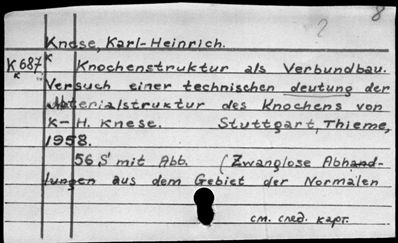 2 8
Knese, Karl-Heinrich.
K 687 K Knochenstruktur als Verbundbau.
K Versuch einer technischen deutung der
Materialstruktur des Knochens von
K-H. Knese. Stuttgart, Thieme,
1958.
56 S mit Abb. (Zwanglose Abhand-
lungen aus dem Gebiet der Normalen
см. след. карт.